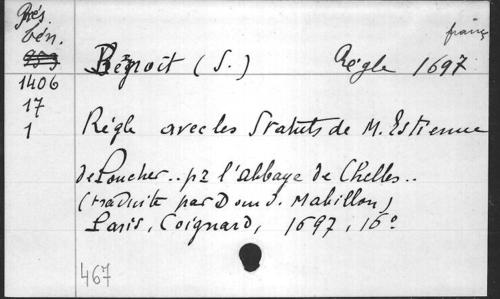 Rés.
Vén.
953
1406
17
1
franç
Bénoit (S.) Règle 1697
Règle avec les Statuts de M. Estienne
de Poucher.. pr l'abbaye de Chelles..
(traduite par Dom J. Mabillon)
Paris, Coignard, 1697, 16°
467